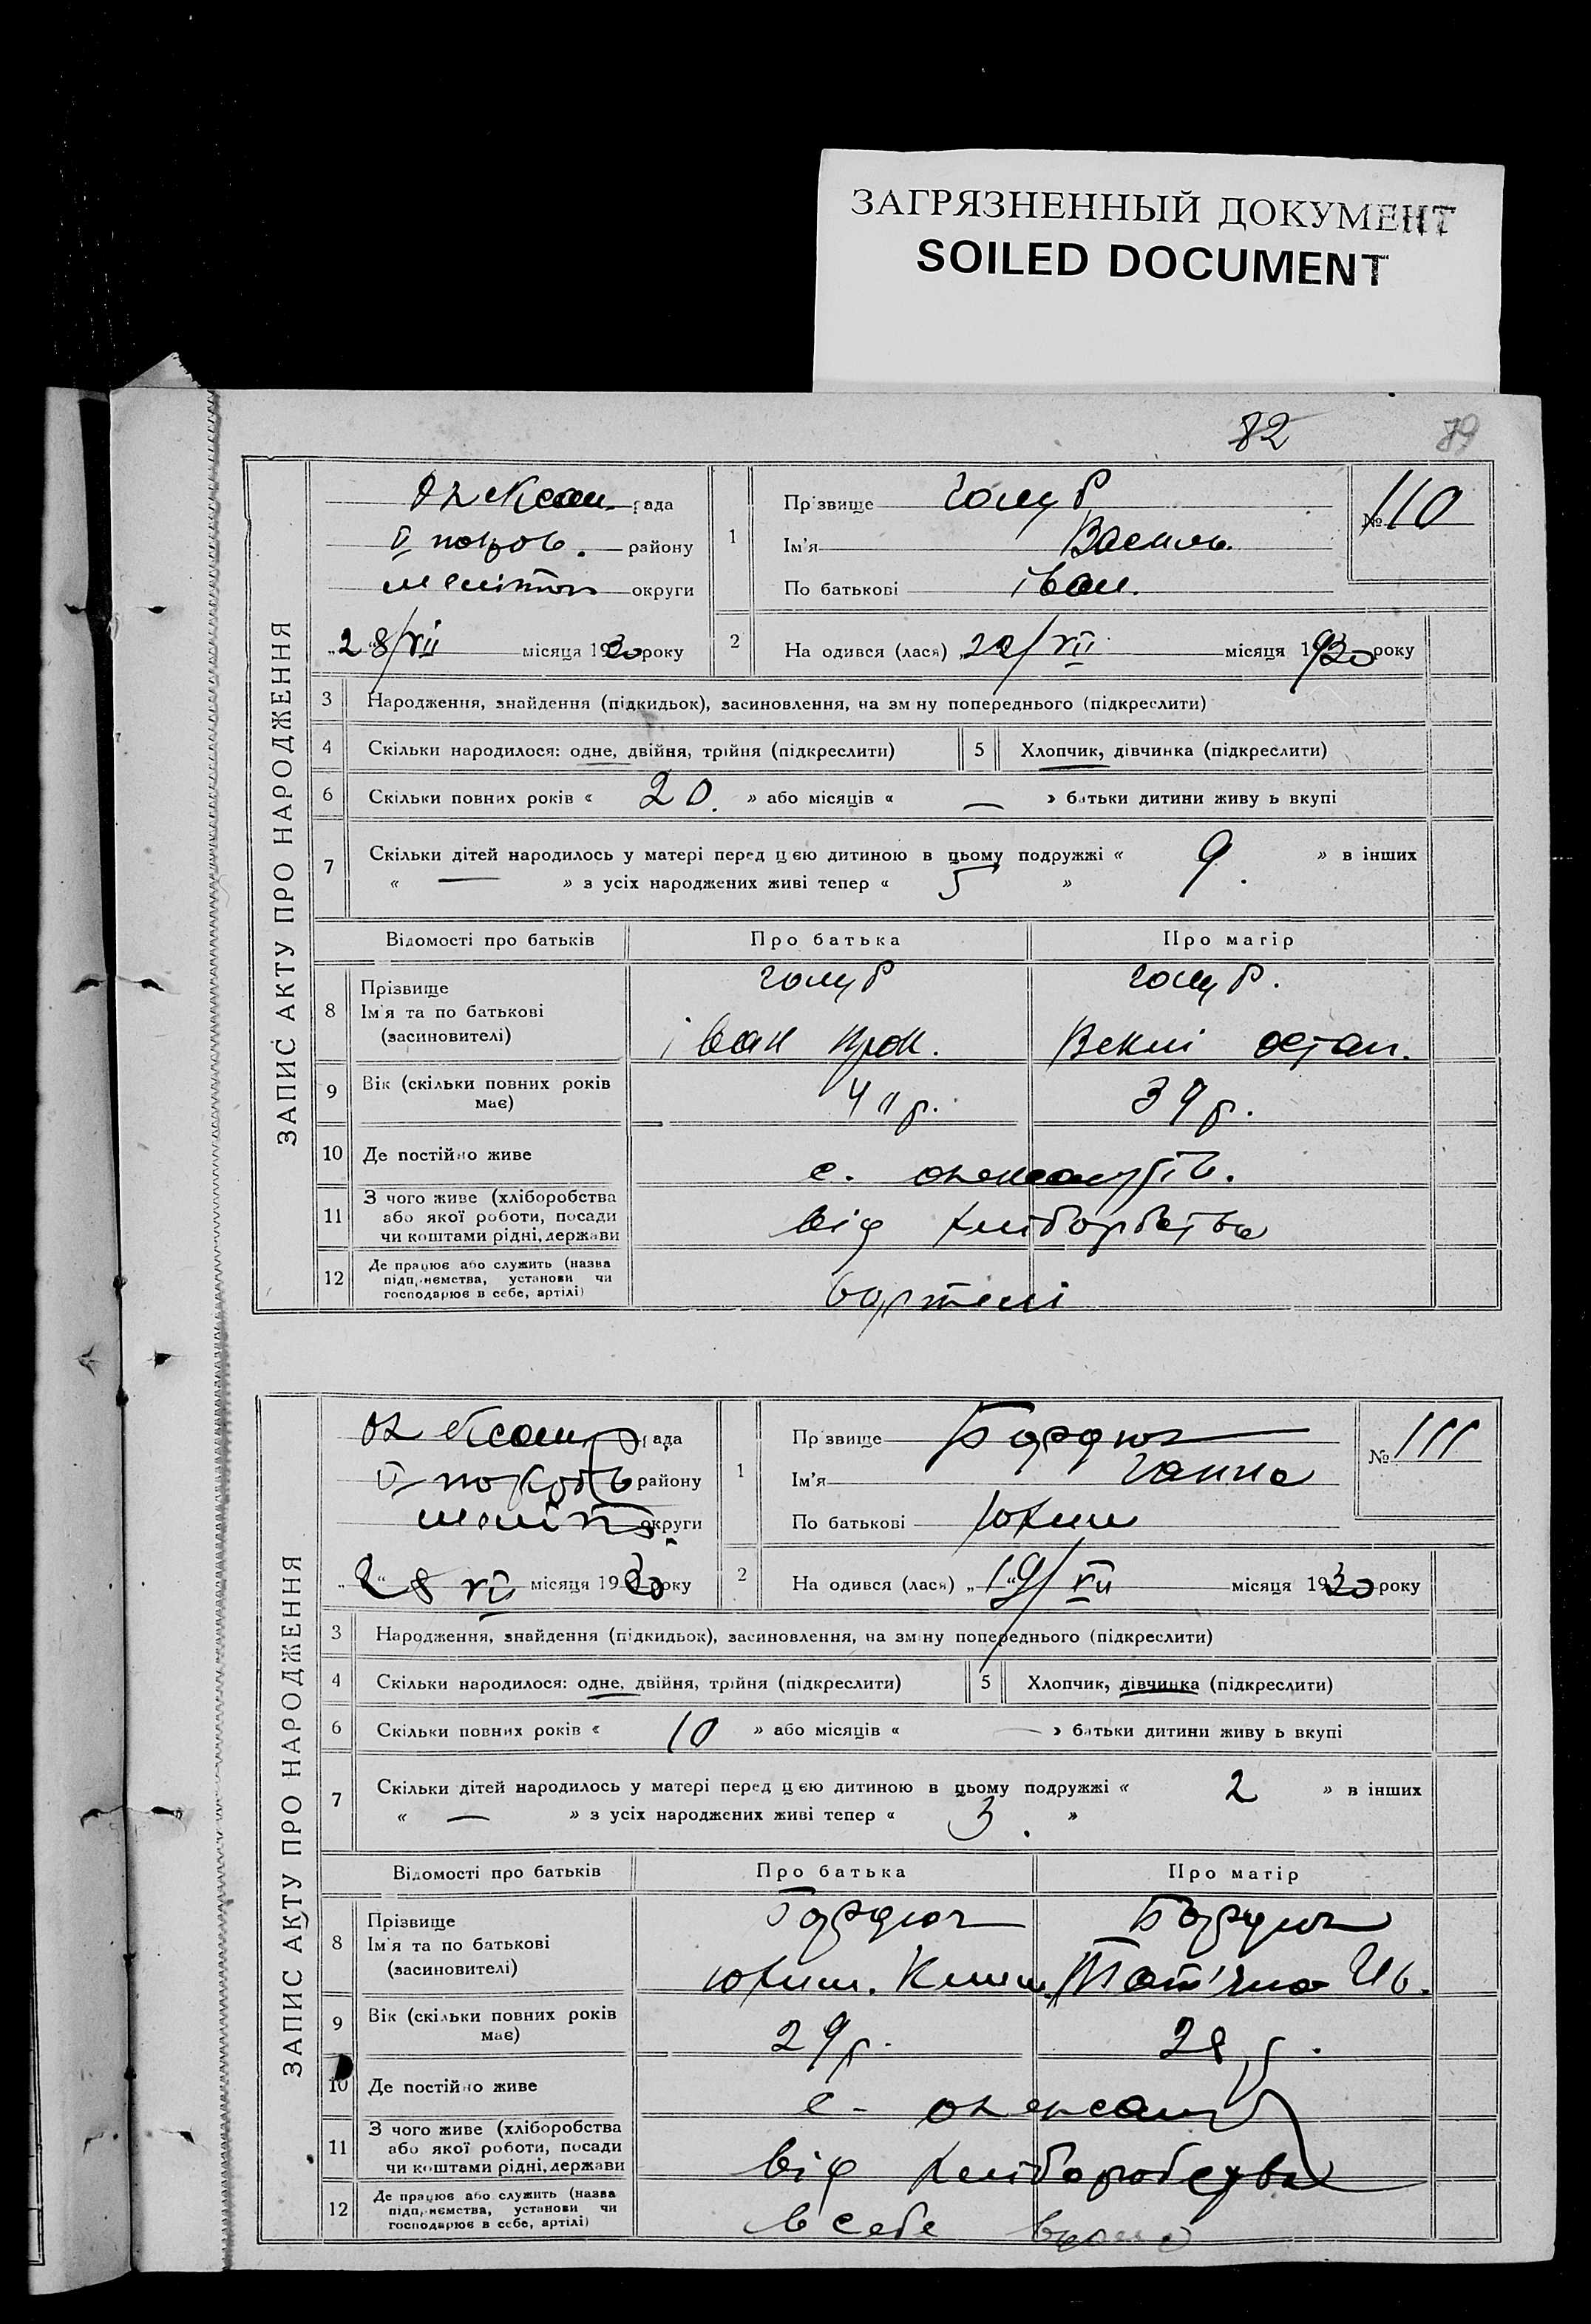 ЗАГРЯЗНЕННЫЙ ДОКУМЕНТ
SOILED DOCUMENT
82 79
ЗАПИС АКТУ ПРО НАРОДЖЕННЯ
Олександ. рада
району
округи
„28/VII місяця 1930 року
1
Прізвище Голуб
Ім'я Василь
По батькові Іван.
№ 110
2 На одився (лася) місяця 1930 року
3 Народження, знайдення (підкидьок), засиновлення, на зм ну попереднього (підкреслити)
4 Скільки народилося: одне, двійня, трійня (підкреслити) 5 Хлопчик, дівчинка (підкреслити)
6 Скільки повних років « 20. » або місяців « — » батьки дитини живу ь вкупі
7 Скільки дітей народилось у матері перед ц єю дитиною в цьому подружжі « 9. » в інших
« — » з усіх народжених живі тепер « 5 »
Відомості про батьків Про батька Про матір
8 Прізвище Голуб Голуб.
Ім'я та по батькові Іван Прок. Векли Остап.
(засиновителі)
9 Вік (скільки повних років має) р. 39 р.
10 Де постійно живе с.
11 З чого живе (хліборобства або якої роботи, посади чи коштами рідні, держави від хліборобства
12 Де працює або служить (назва підприємства, установи чи господарює в себе, артілі) вартелі
ЗАПИС АКТУ ПРО НАРОДЖЕННЯ
Олександр рада
району
округи
„28 VII місяця 1930 року
1
Прізвище Бардюг
Ім'я Ганна
По батькові Юхим
№ 111
2 На одився (лася) „19/VII місяця 1930 року
3 Народження, знайдення (підкидьок), засиновлення, на зм ну попереднього (підкреслити)
4 Скільки народилося: одне, двійня, трійня (підкреслити) 5 Хлопчик, дівчинка (підкреслити)
6 Скільки повних років « 10 » або місяців « — » батьки дитини живу ь вкупі
7 Скільки дітей народилось у матері перед ц єю дитиною в цьому подружжі « 2 » в інших
« — » з усіх народжених живі тепер « 3. »
Відомості про батьків Про батька Про матір
8 Прізвище Бардюг Бардюг
Ім'я та по батькові Юхим. Клим. Тат'яна Ив.
(засиновителі)
9 Вік (скільки повних років має) 29 р. 28 р.
10 Де постійно живе с. Олександр
11 З чого живе (хліборобства або якої роботи, посади чи коштами рідні, держави від хліборобства
12 Де працює або служить (назва підприємства, установи чи господарює в себе, артілі) в себе вдома